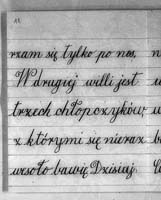 rzam się tylko po nos.
W drugiej willi jest
trzech chłopczyków,
z którymi się nieraz
wesoło bawię. Dzisiaj